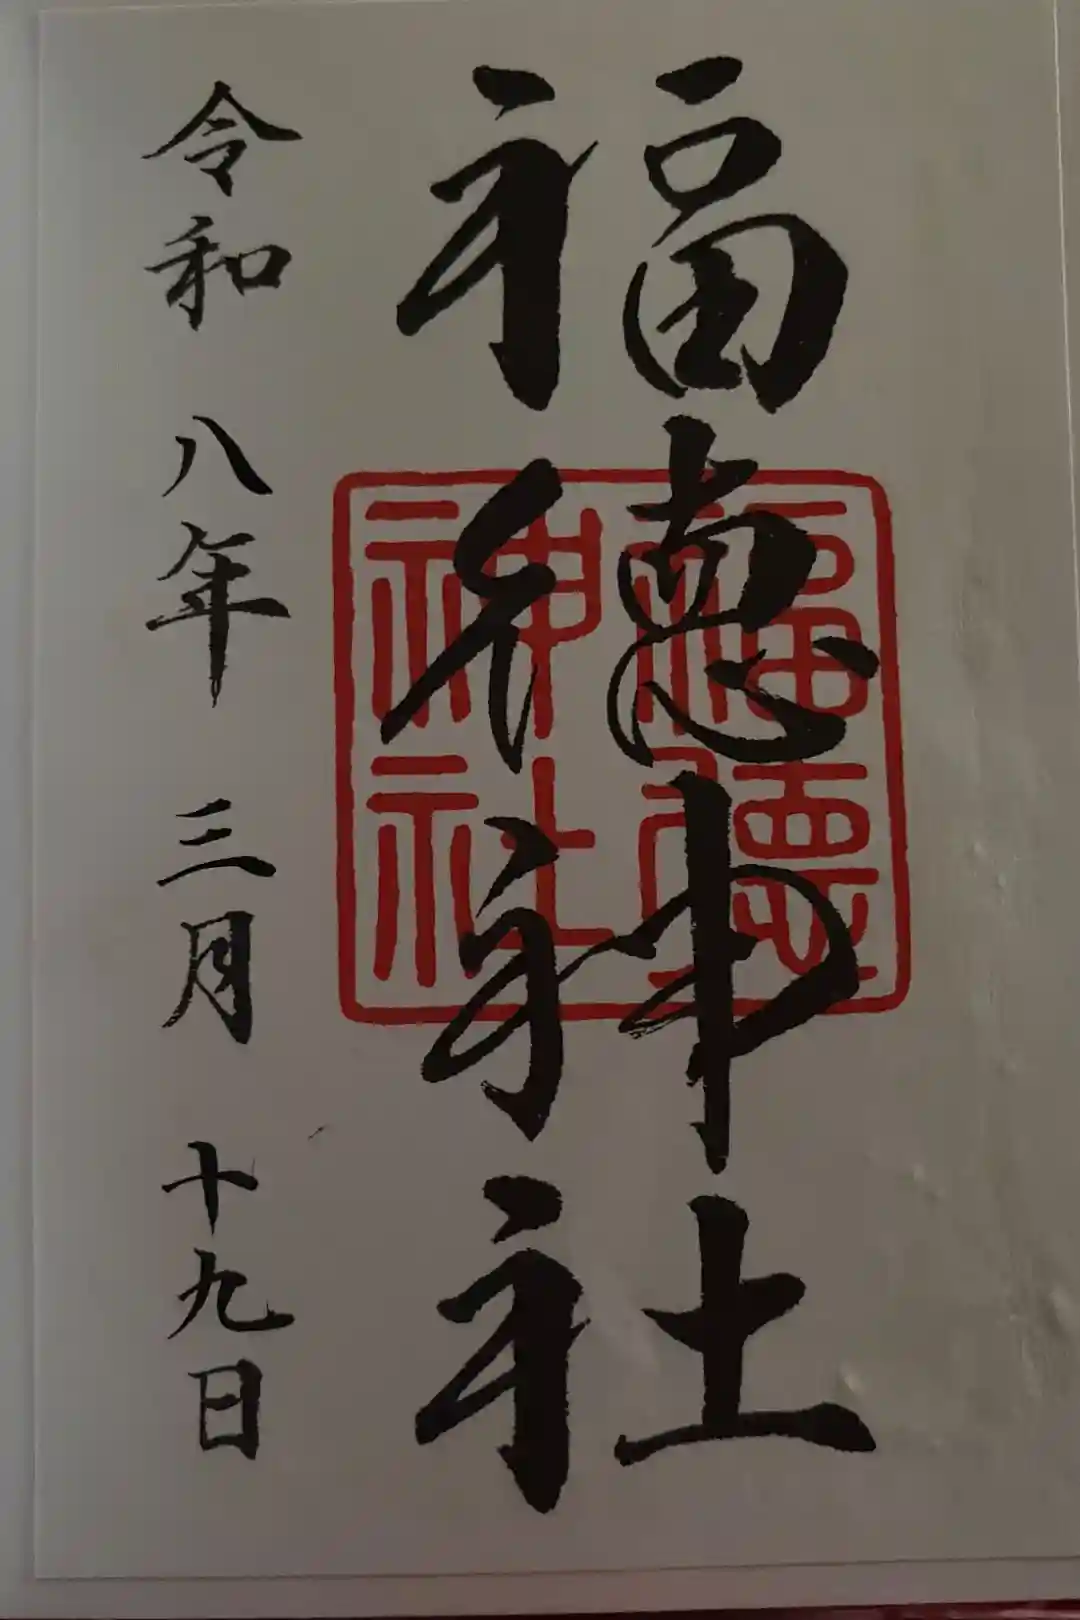 福德神社
福德神社
令和八年三月十九日